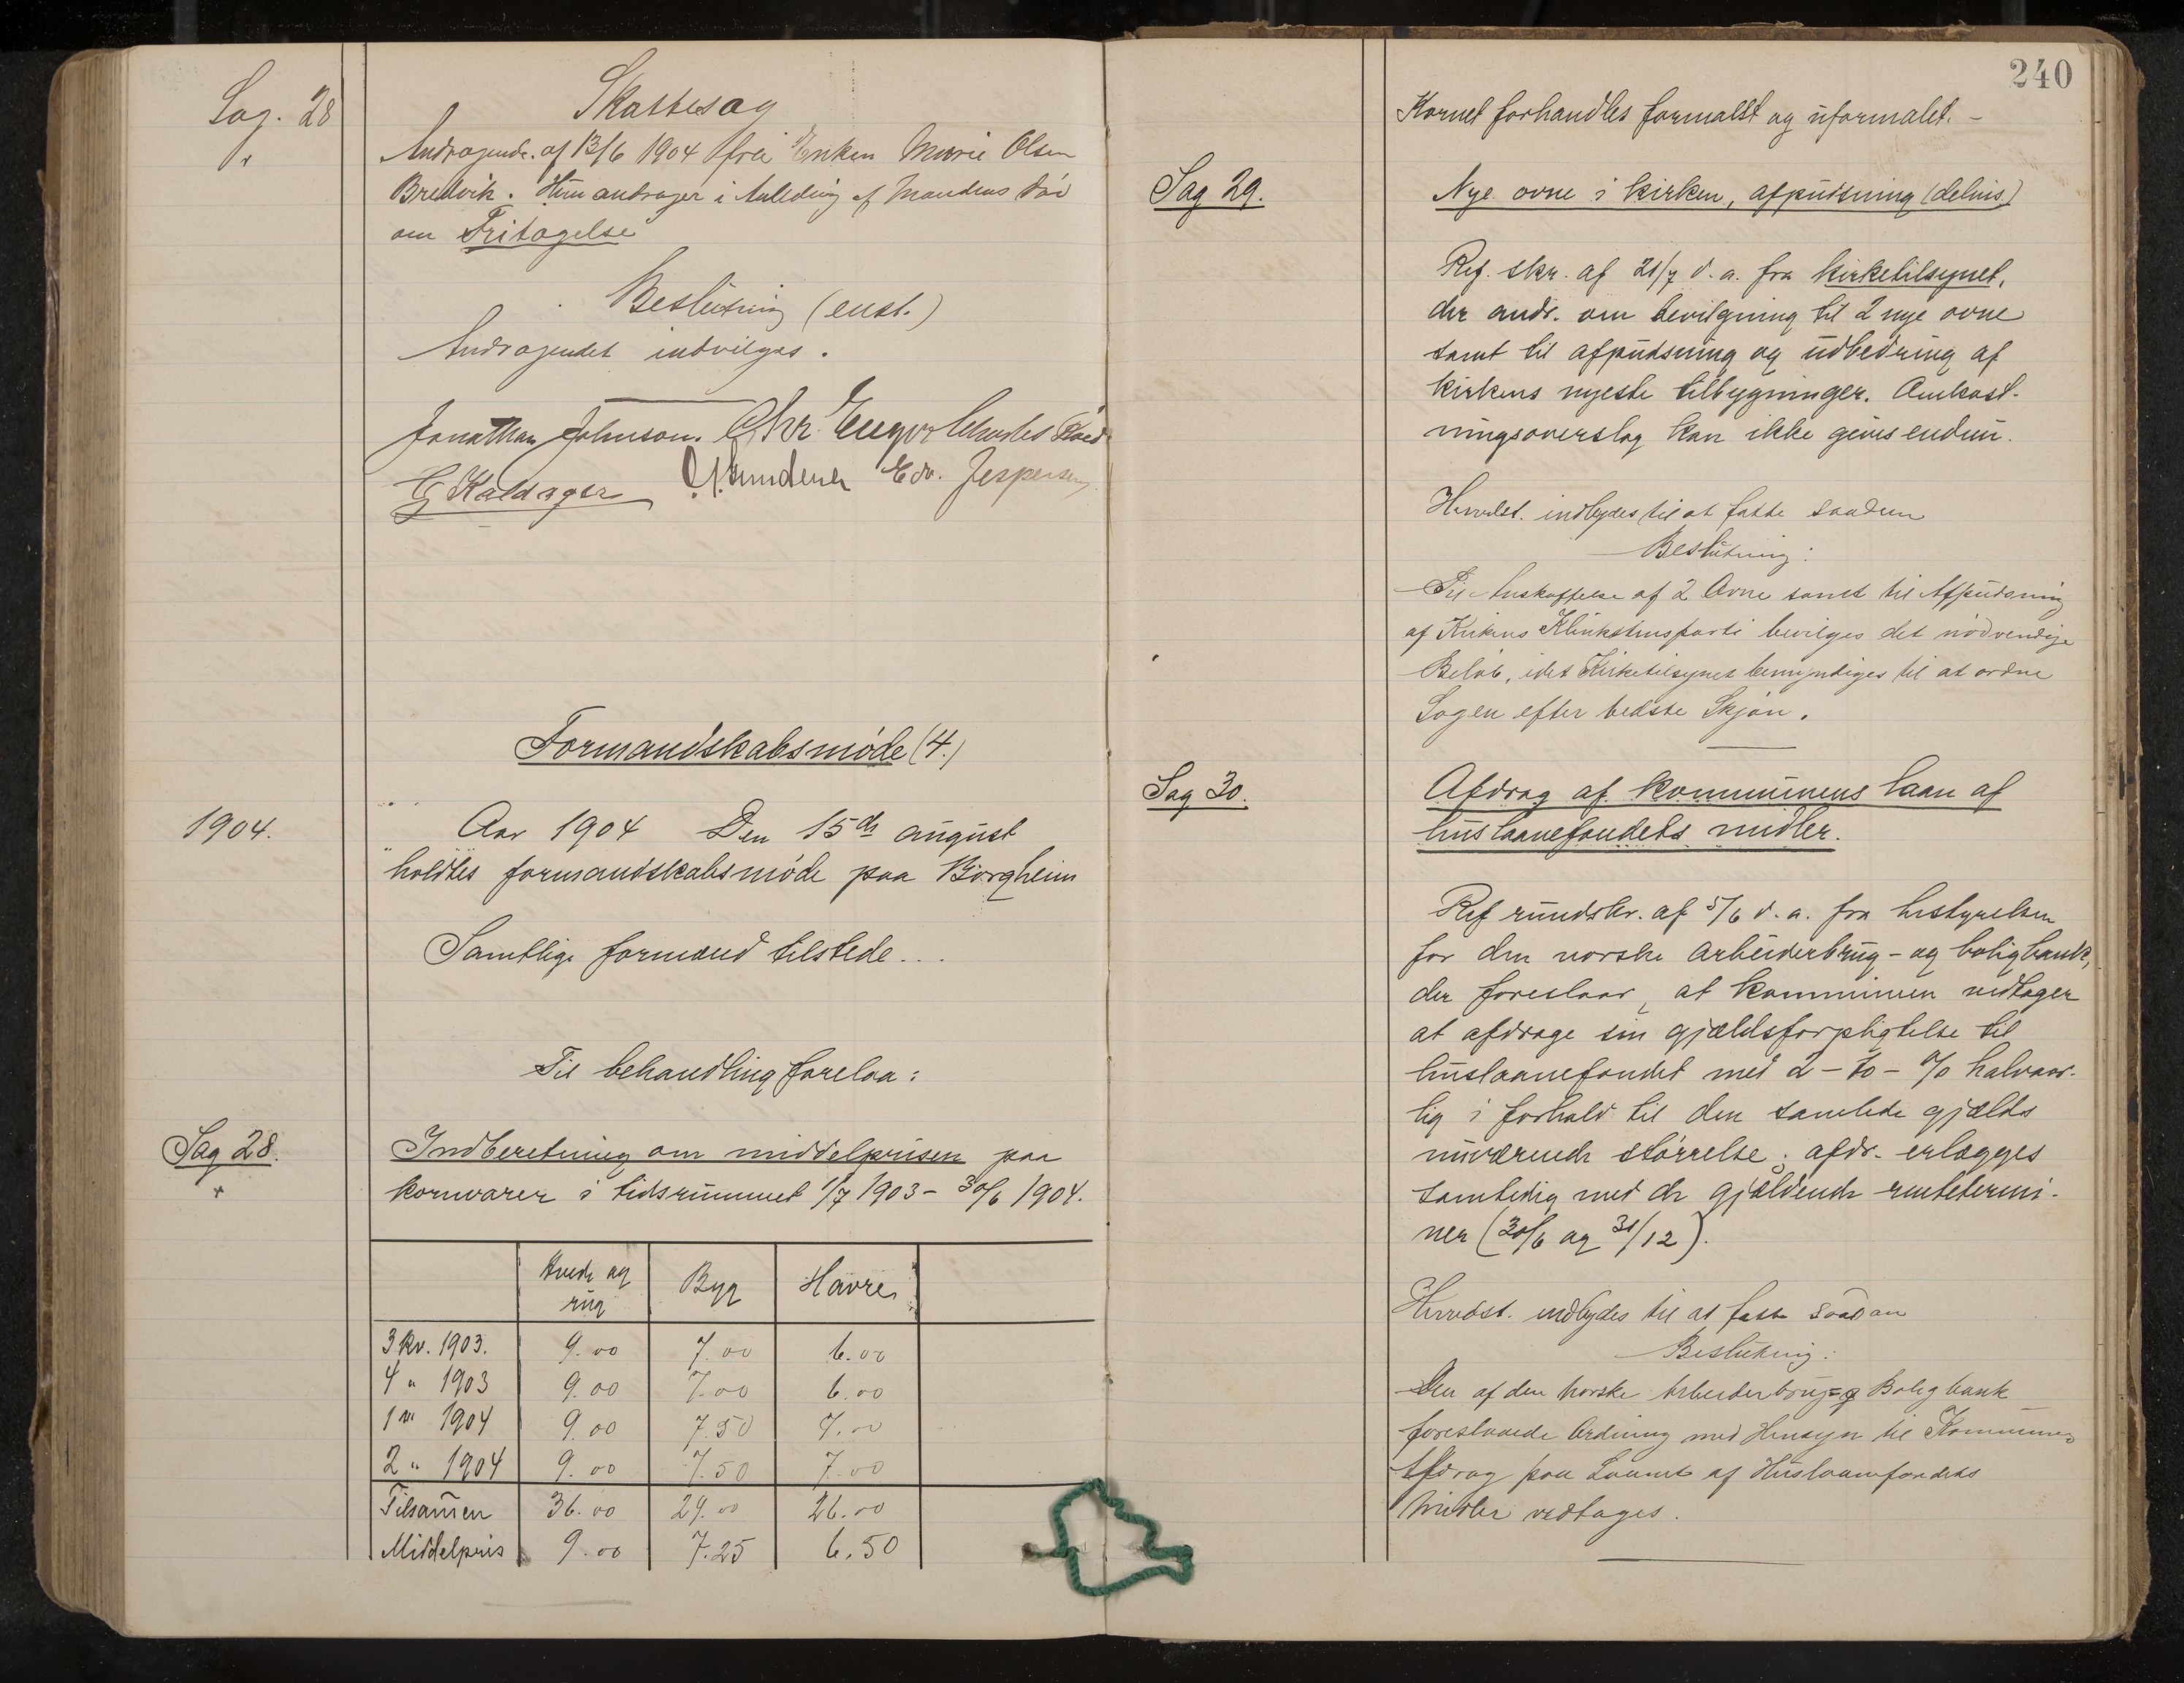 Sag. 28
Skattesag
Andragende af 13/6 1904 fra Enken Marie Olsen
Bredvik. Hun andrager i Anledning af Mandens Død
om Fritagelse
Beslutning (enst.)
Andragendet indvilges.
Jonathan Johnson. Chr Enger
G Kaldager Edv. Jespersen
Formandskabsmøde (4.)
1904.
Aar 1904 Den 15de august
holdtes formandskabsmøde paa Borgheim
Samtlige formænd tilstede...
Til behandling forelaa:
Sag 28.
Indberetning om middelprisen paa
kornvarer i tidsrummet 1/7 1903 - 30/6 1904.
Hvede og rug Byg Havre
3 kv. 1903. 9.00 7.00 6.00
4 " 1903 9.00 7.00 6.00
1 " 1904 9.00 7.50 7.00
2 " 1904 9.00 7.50 7.00
Tilsam̄en 36.00 29.00 26.00
Middelpris 9.00 7.25 6.50
240
Kornet forhandles formalet og uformalet. -
Sag 29.
Nye ovne i kirken, afpudsning (delvis)
Ref. skr. af 21/7 d. a. fra kirketilsynet,
der andr. om bevilgning til 2 nye ovne
samt til afpudsning og udbedring af
kirkens nyeste tilbygninger. Omkost-
ningsoverslag kan ikke gives endnu.
Herredst. indbydes til at fatte saadan
Beslutning:
Til Anskaffelse af 2 Ovne samt til Afpudsning
af Kirkens Klinkstensparti bevilges det nødvendige
Beløb, idet Kirketilsynet bemyndiges til at ordne
Sagen efter bedste Skjøn.
Sag 30.
Afdrag af kommunens laan af
huslaanefondets midler.
Ref rundskr. af 5/6 d. a. fra bestyrelsen
for den norske arbeiderbrug- og boligbank,
der foreslaar, at kommunen vedtager
at afdrage sin gjældsforpligtelse til
huslaanefondet med 2 - to - % halvaar-
lig i forhold til den samlede gjælds
nuværende størrelse; afdr. erlægges
samtidig med de gjældende rentetermi-
ner (30/6 og 31/12).
Herredst. indbydes til at fatte saadan
Beslutning:
Den af den norske Arbeiderbrug- og Boligbank
foreslaaede Ordning med Hensyn til Kommunens
Afdrag paa Laanet af Huslaanefondets
Midler vedtages.